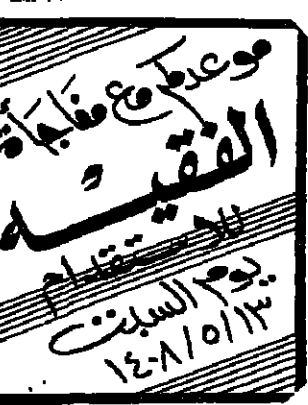 موعدكم مع مفاجأة
الفقيه
للاستقدام
يوم السبت
١٤٠٨/٥/١٣